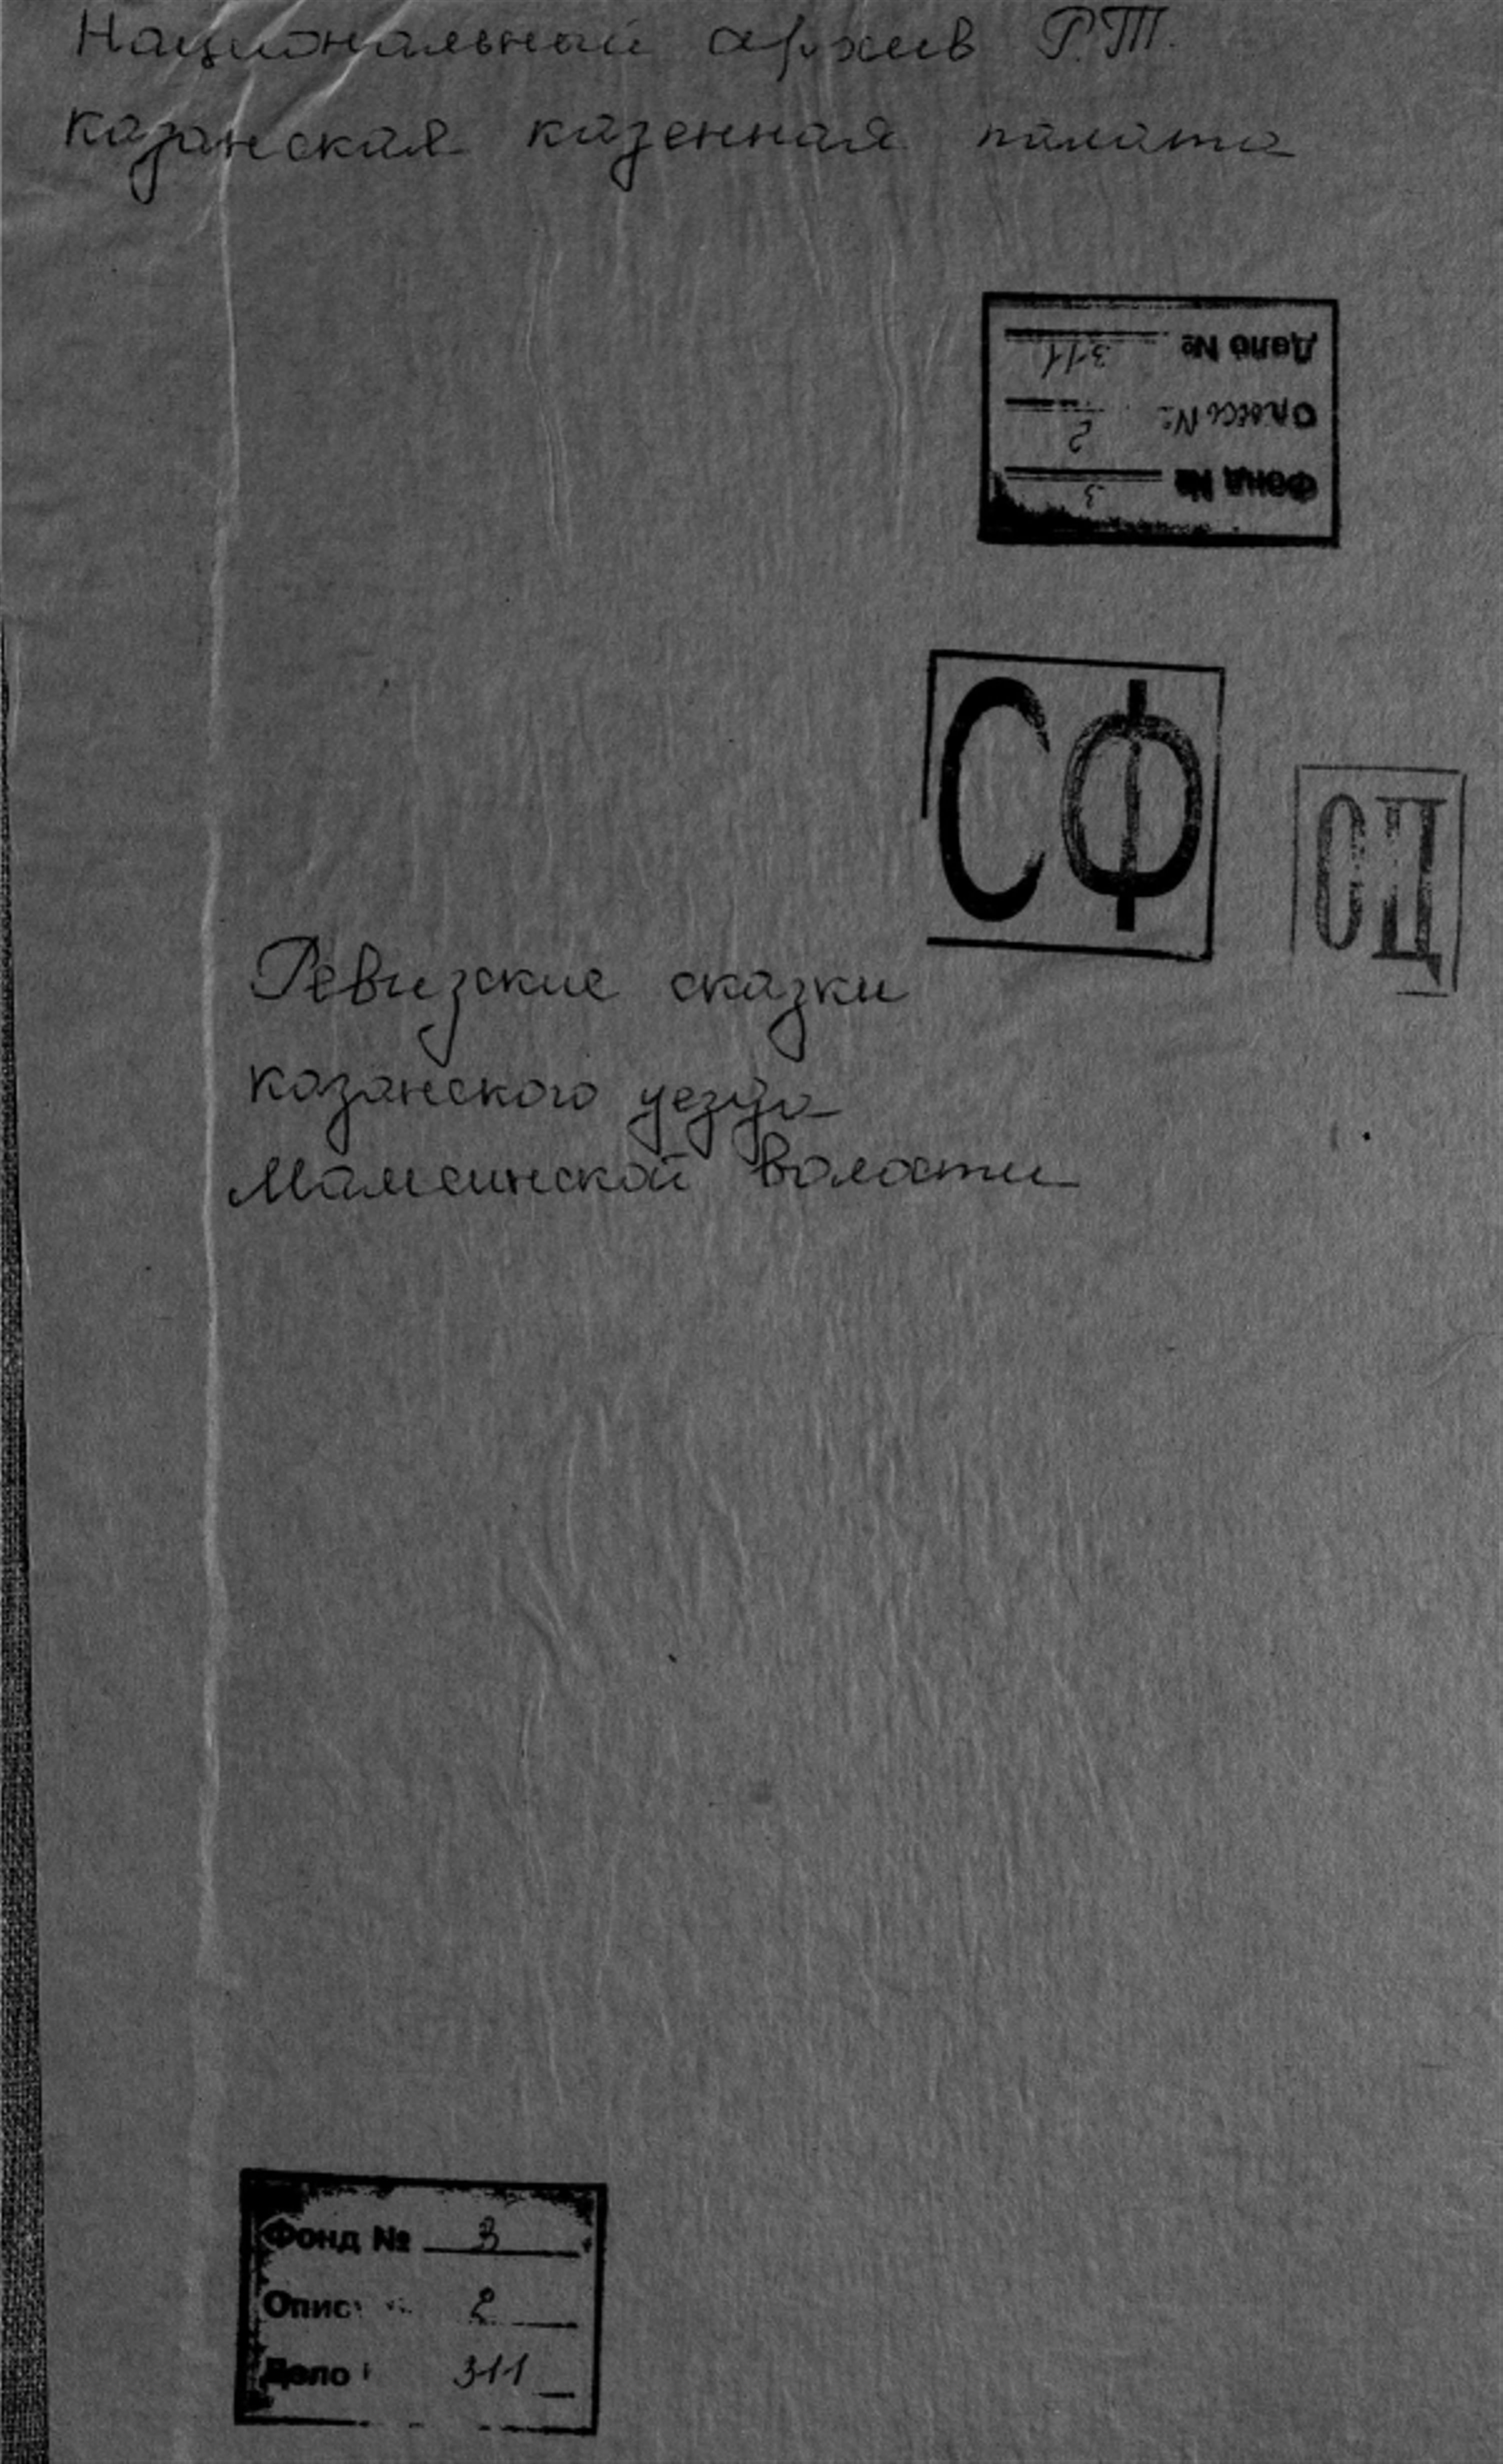 Национальный архив Р.Т.
Казанская казенная палата
Дело № 311
Опись № 2
Фонд № 3
СФ
СЦ
Ревизские сказки
Казанского уезда
Мамсинской волости
Фонд № 3
Опис 2
Дело 311